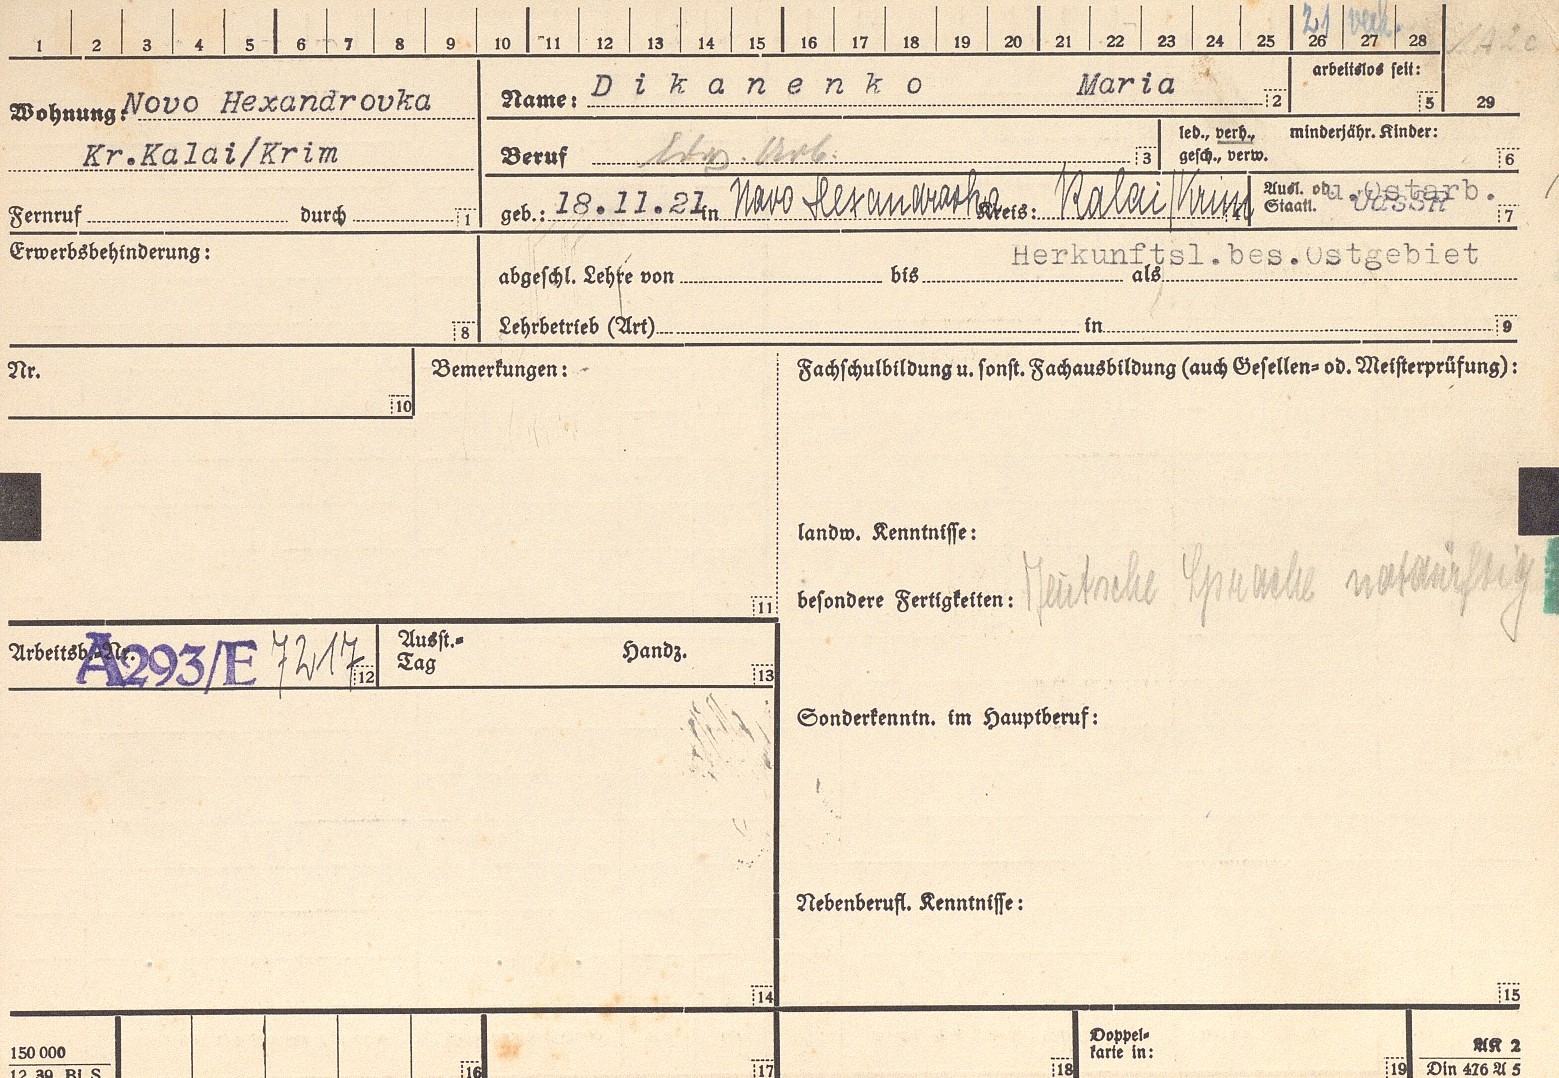 1 2 3 4 5 6 7 8 9 10 11 12 13 14 15 16 17 18 19 20 21 22 23 24 25 26 27 28
21 verh.
Wohnung: Novo Hexandrovka
Kr.Kalai/Krim
Fernruf durch 1
Name: Dikanenko Maria 2
arbeitslos seit: 5
29
Beruf 3
led., verh., gesch., verw.
minderjähr. Kinder: 6
geb.: 18.11.21 in Novo Alexandrovka Kreis: Kalai/Krim 4
Ausl. od. Staatl. u.Ostarb. UdSSR 7
Erwerbsbehinderung: 8
Herkunftsl.bes.Ostgebiet
abgeschl. Lehre von bis als
Lehrbetrieb (Art) in 9
Nr. 10
Bemerkungen: 11
Fachschulbildung u. sonst. Fachausbildung (auch Gesellen- od. Meisterprüfung):
landw. Kenntnisse:
besondere Fertigkeiten: Deutsche Sprache notdürftig
Arbeitsb.-Nr. A293/E 7217 12
Ausst.-Tag Handz. 13
Sonderkenntn. im Hauptberuf:
Nebenberufl. Kenntnisse:
14
15
150 000
12. 39. Bl S.
16
17
18
Doppel-
karte in: 19
AK 2
Din 476 A 5